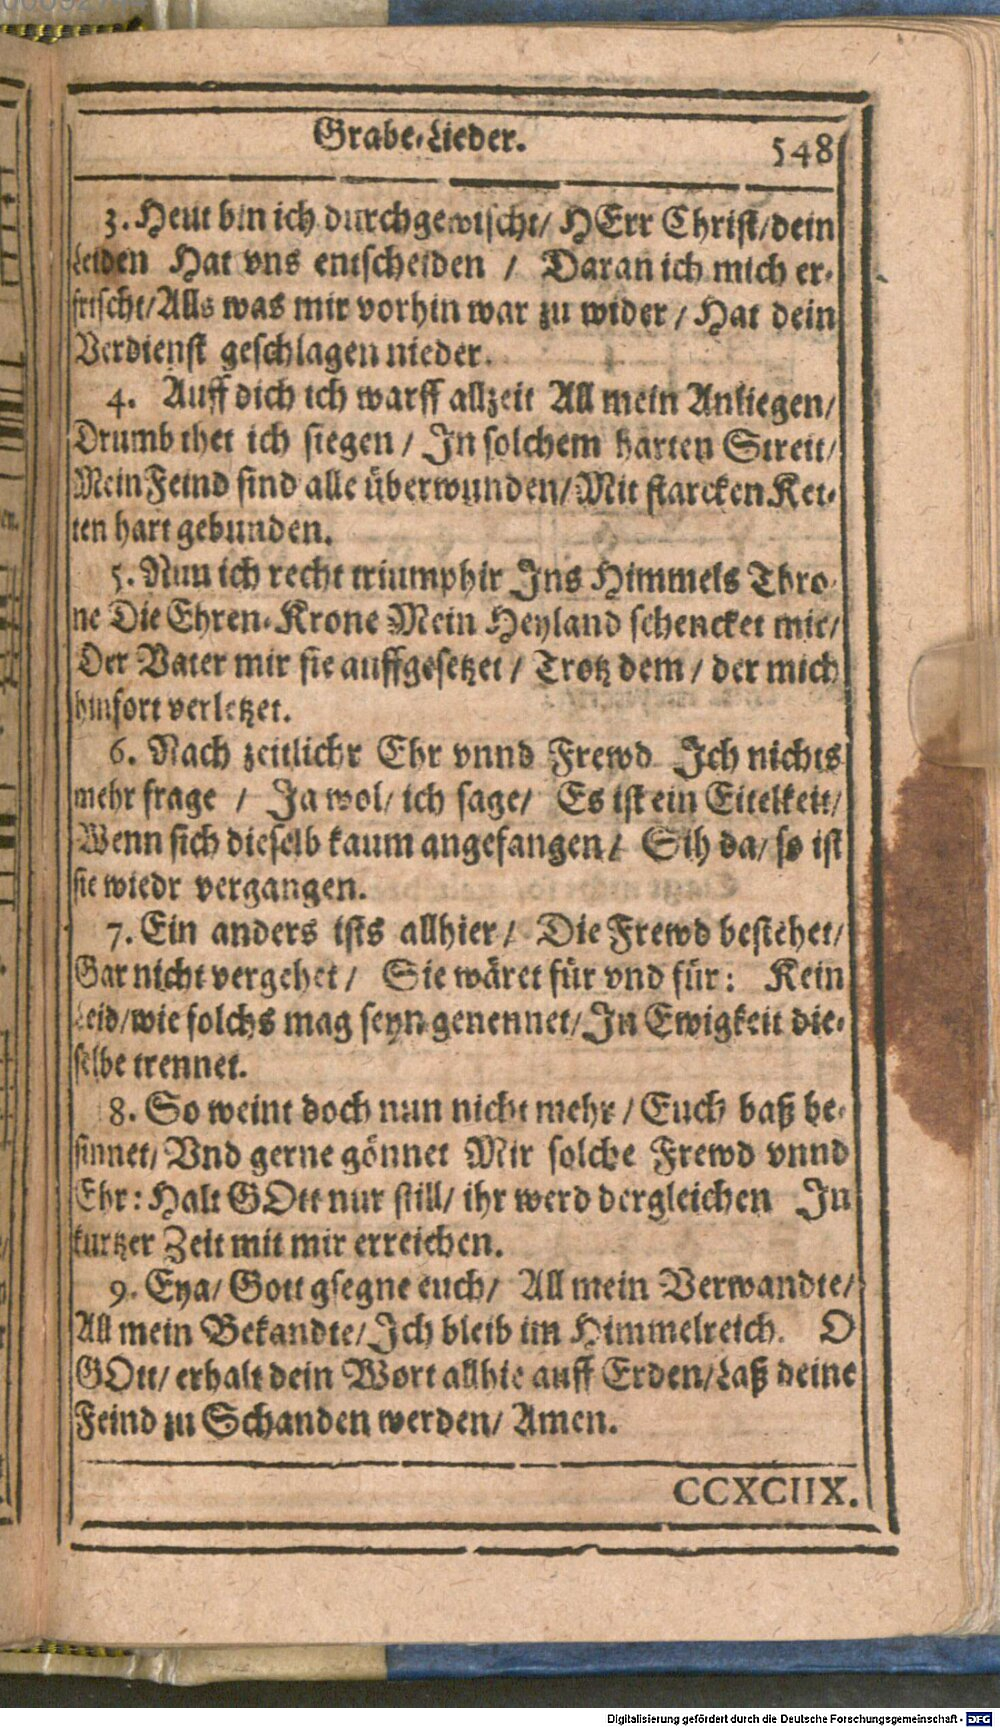 Grabe-Lieder.
548
3. Heut bin ich durchgewischt/ HErr Christ/dein
Leiden Hat vns entscheiden / Daran ich mich er-
frischt/Alls was mir vorhin war zu wider / Hat dein
Verdienst geschlagen nieder.
4. Auff dich ich warff allzeit All mein Anliegen/
Drumb thet ich siegen / In solchem harten Streit/
Mein Feind sind alle überwunden/Mit starcken Ket-
ten hart gebunden.
5. Nun ich recht triumphir Ins Himmels Thro-
ne Die Ehren-Krone Mein Heyland schencket mir/
Der Vater mir sie auffgesetzet / Trotz dem / der mich
hinfort verletzet.
6. Nach zeitlichr Ehr vnnd Frewd Ich nichts
mehr frage / Ja wol/ ich sage/ Es ist ein Eitelkeit/
Wenn sich dieselb kaum angefangen/ Sih da/ so ist
sie wiedr vergangen.
7. Ein anders ists allhier/ Die Frewd bestehet/
Gar nicht vergehet / Sie wäret für vnd für: Kein
Leid/wie solchs mag seyn genennet/In Ewigkeit die-
selbe trennet.
8. So weint doch nun nicht mehr / Euch baß be-
sinnet/ Vnd gerne gönnet Mir solche Frewd vnnd
Ehr: Halt GOtt nur still/ ihr werd dergleichen In
kurtzer Zeit mit mir erreichen.
9. Eya/ Gott gsegne euch/ All mein Verwandte/
All mein Bekandte/Ich bleib im Himmelreich. O
GOtt/ erhalt dein Wort allhie auff Erden/Laß deine
Feind zu Schanden werden/ Amen.
CCXCIIX.
Digitalisierung gefördert durch die Deutsche Forschungsgemeinschaft - DFG